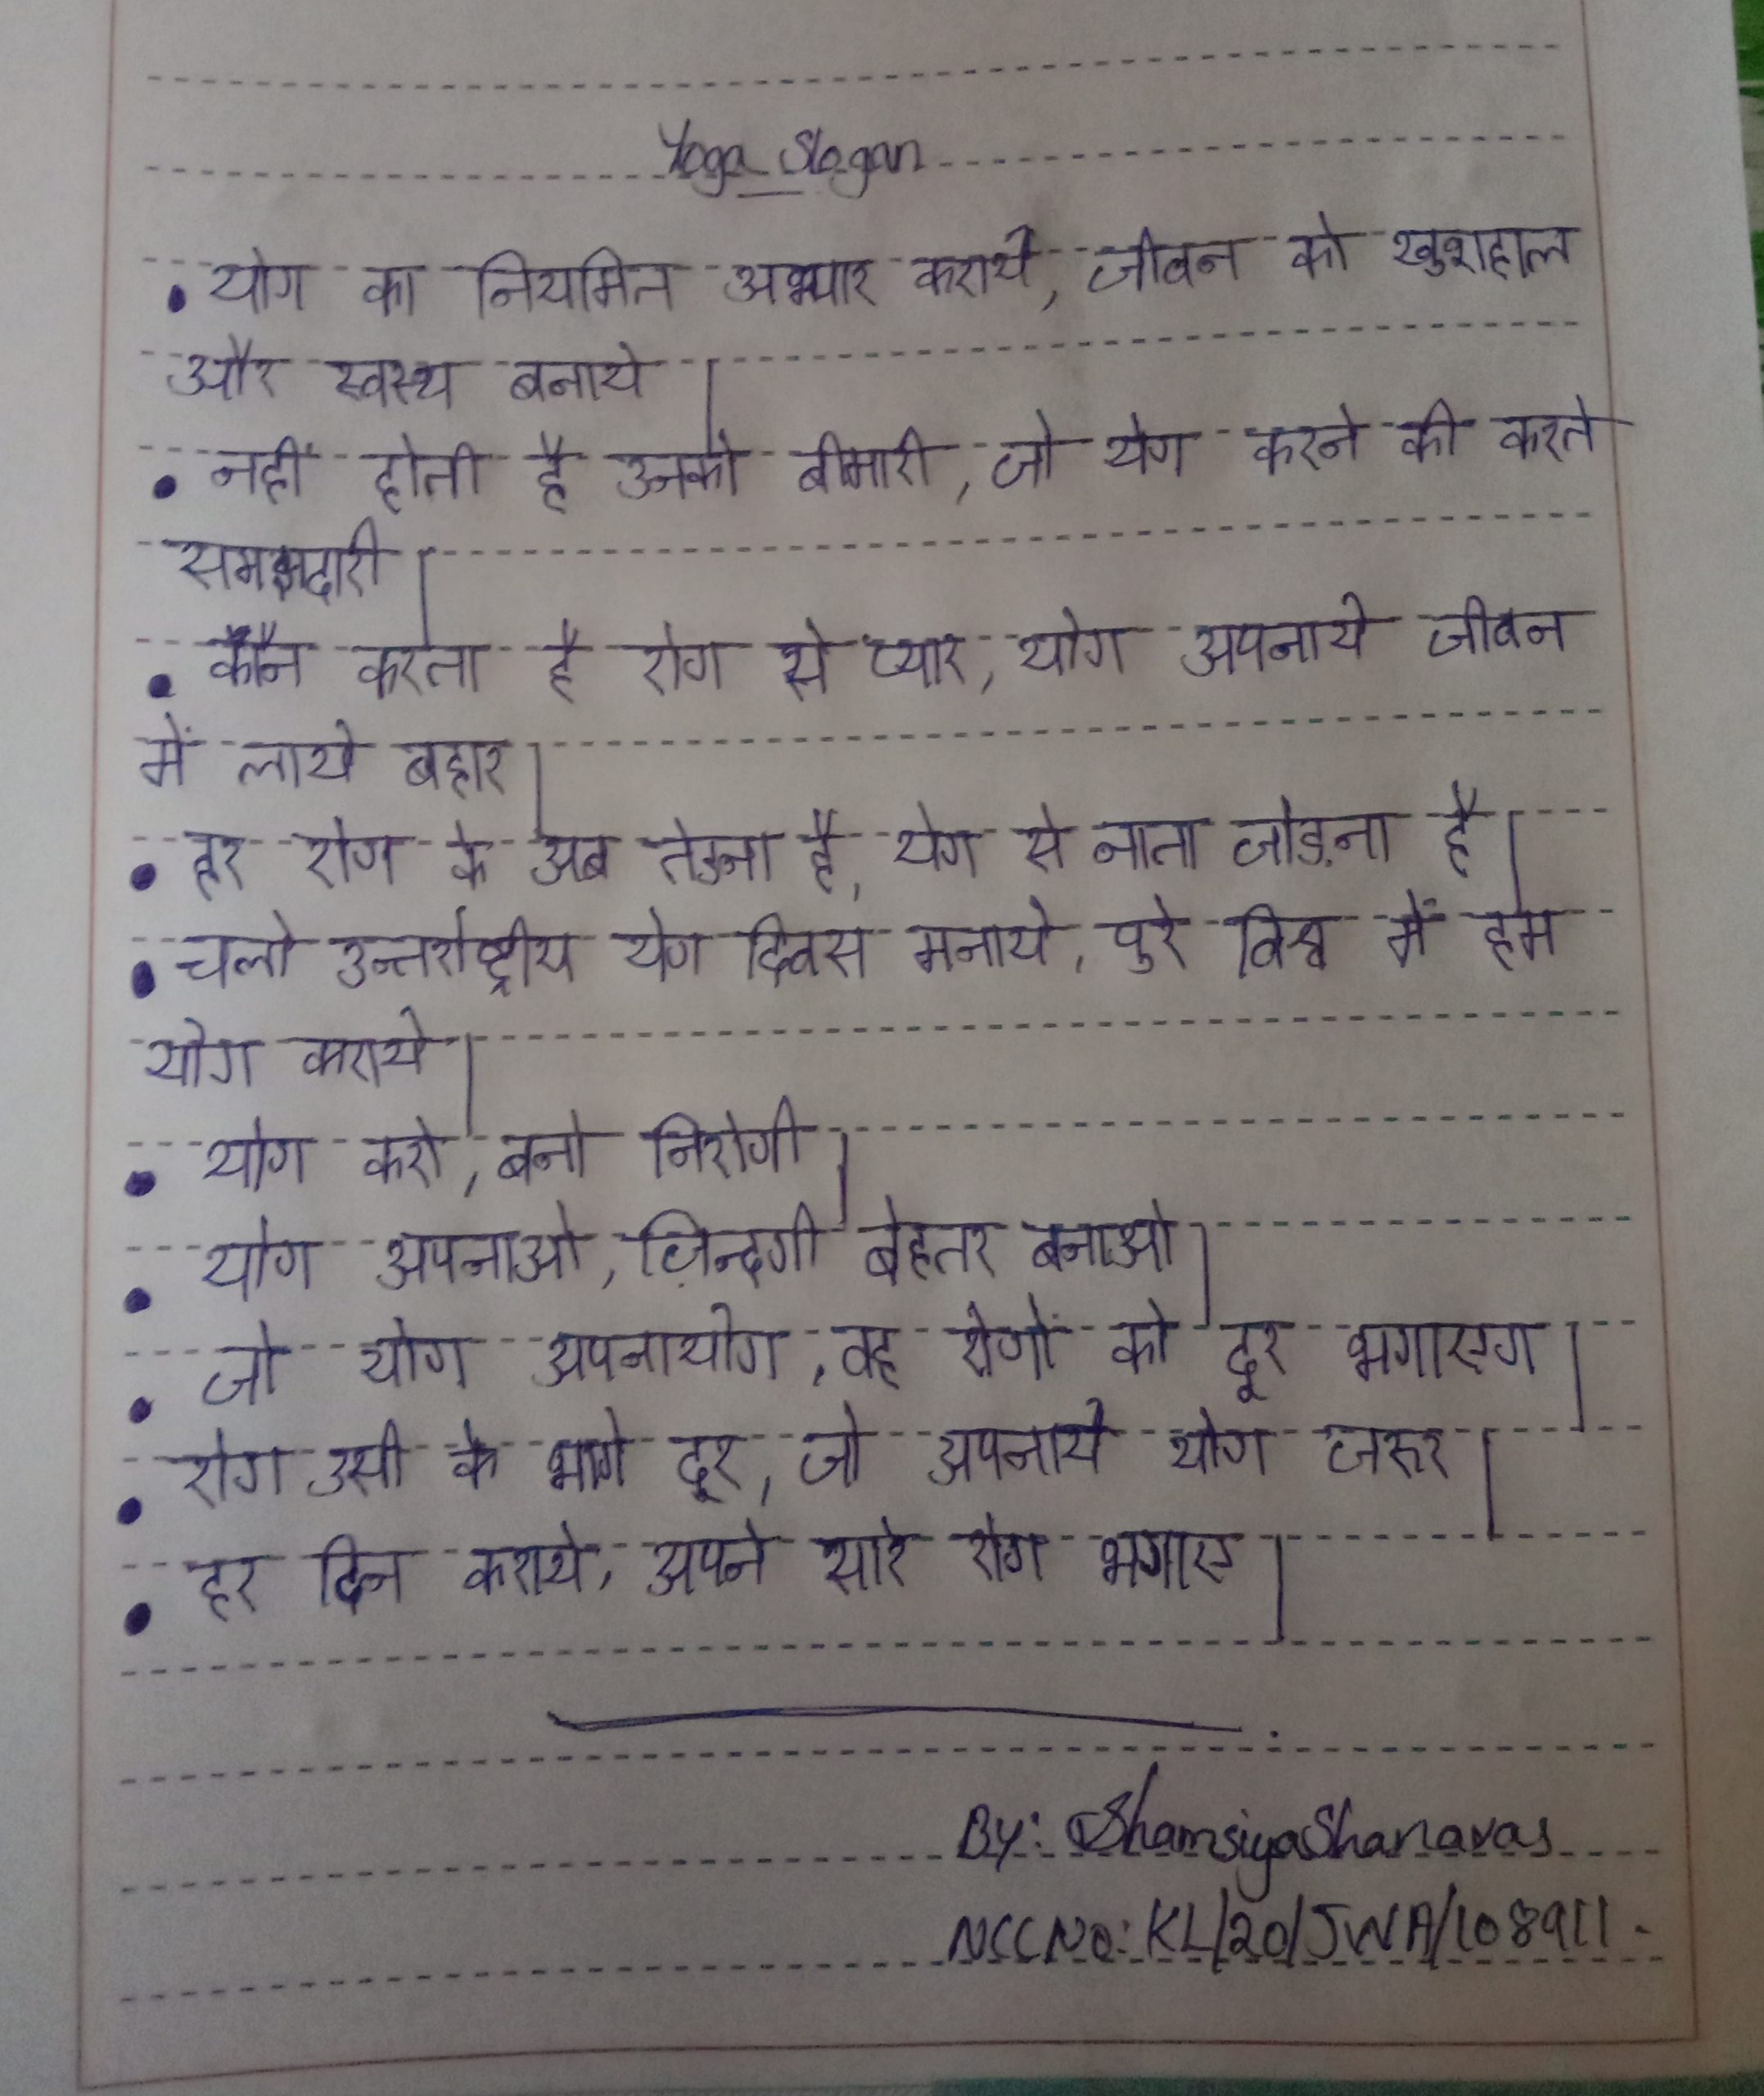 Yoga Slogan
• योग का नियमित अभ्यार कराये, जीवन को खुशहाल
और स्वस्थ बनाये |
• नहीं होती है उनको बीमारी, जो येग करने की करते
समझदारी |
• कौन करता है रोग से प्यार, योग अपनाये जीवन
में लाये बहार |
• हर रोग के अब तेडना है, येग से नाता जोड़ना है |
• चलो उन्तर्राष्ट्रीय येग दिवस मनाये, पुरे विश्व में हम
योग कराये |
• योग करो, बनो निरोगी |
• योग अपनाओ, ज़िन्दगी बेहतर बनाओ |
• जो योग अपनायोग, वह रोगों को दूर भगाएग |
• रोग उसी के भागे दूर, जो अपनाये योग जरूर |
• हर दिन कराये, अपने सारे रोग भगाए |
By: Shamsiya Shanavas
NCC No: KL/20/JWA/108911.